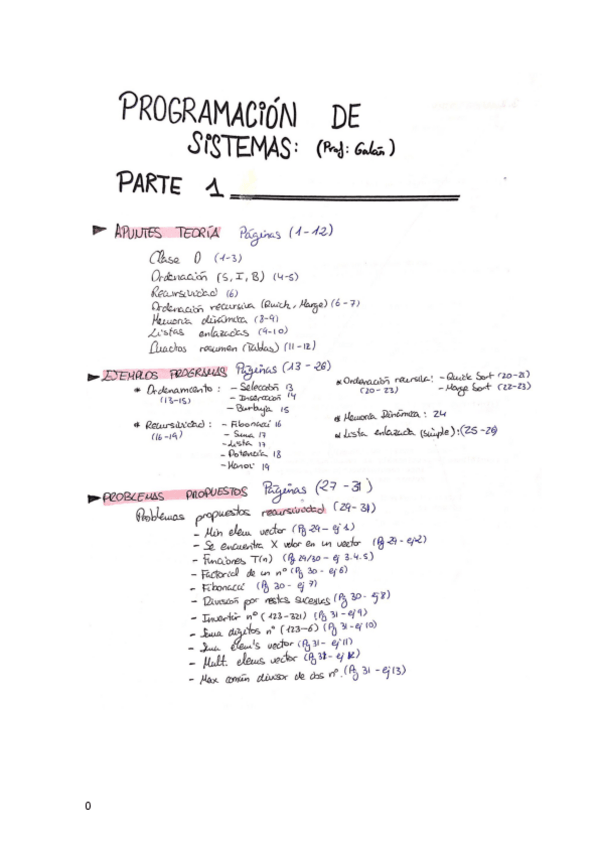 PROGRAMACIÓN DE
SISTEMAS: (Prof: Galán)
PARTE 1
APUNTES TEORÍA Páginas (1-12)
Clase 0 (1-3)
Ordenación (S, I, B) (4-5)
Recursividad (6)
Ordenación recursiva (Quick, Marge) (6-7)
Memoria dinámica (8-9)
Listas enlazadas (9-10)
Cuadros resumen (Tablas) (11-12)
EJEMPLOS PROGRAMAS Páginas (13-26)
* Ordenamiento: - Selección 13
(13-15) - Inserción 14
- Burbuja 15
* Recursividad: - Fibonacci 16
(16-19) - Suma 17
- Lista 17
- Potencia 18
- Hanoi 19
* Ordenación recursiva: - Quick Sort (20-21)
(20-23) - Marge Sort (22-23)
* Memoria Dinámica: 24
* Lista enlazada (simple): (25-26)
PROBLEMAS PROPUESTOS Páginas (27-31)
Problemas propuestos recursividad (29-31)
- Min elem vector (Pg 29 - ej 1)
- Se encuentra X valor en un vector (Pg 29 - ej 2)
- Funciones T(n) (Pg 29/30 - ej 3.4.5)
- Factorial de un nº (Pg 30 - ej 6)
- Fibonacci (Pg 30 - ej 7)
- División por restas sucesivas (Pg 30 - ej 8)
- Invertir nº (123-321) (Pg 31 - ej 9)
- Suma dígitos nº (123-6) (Pg 31 - ej 10)
- Suma elem's vector (Pg 31 - ej 11)
- Mult. elems vector (Pg 31 - ej 12)
- Max común divisor de dos nº. (Pg 31 - ej 13)
0